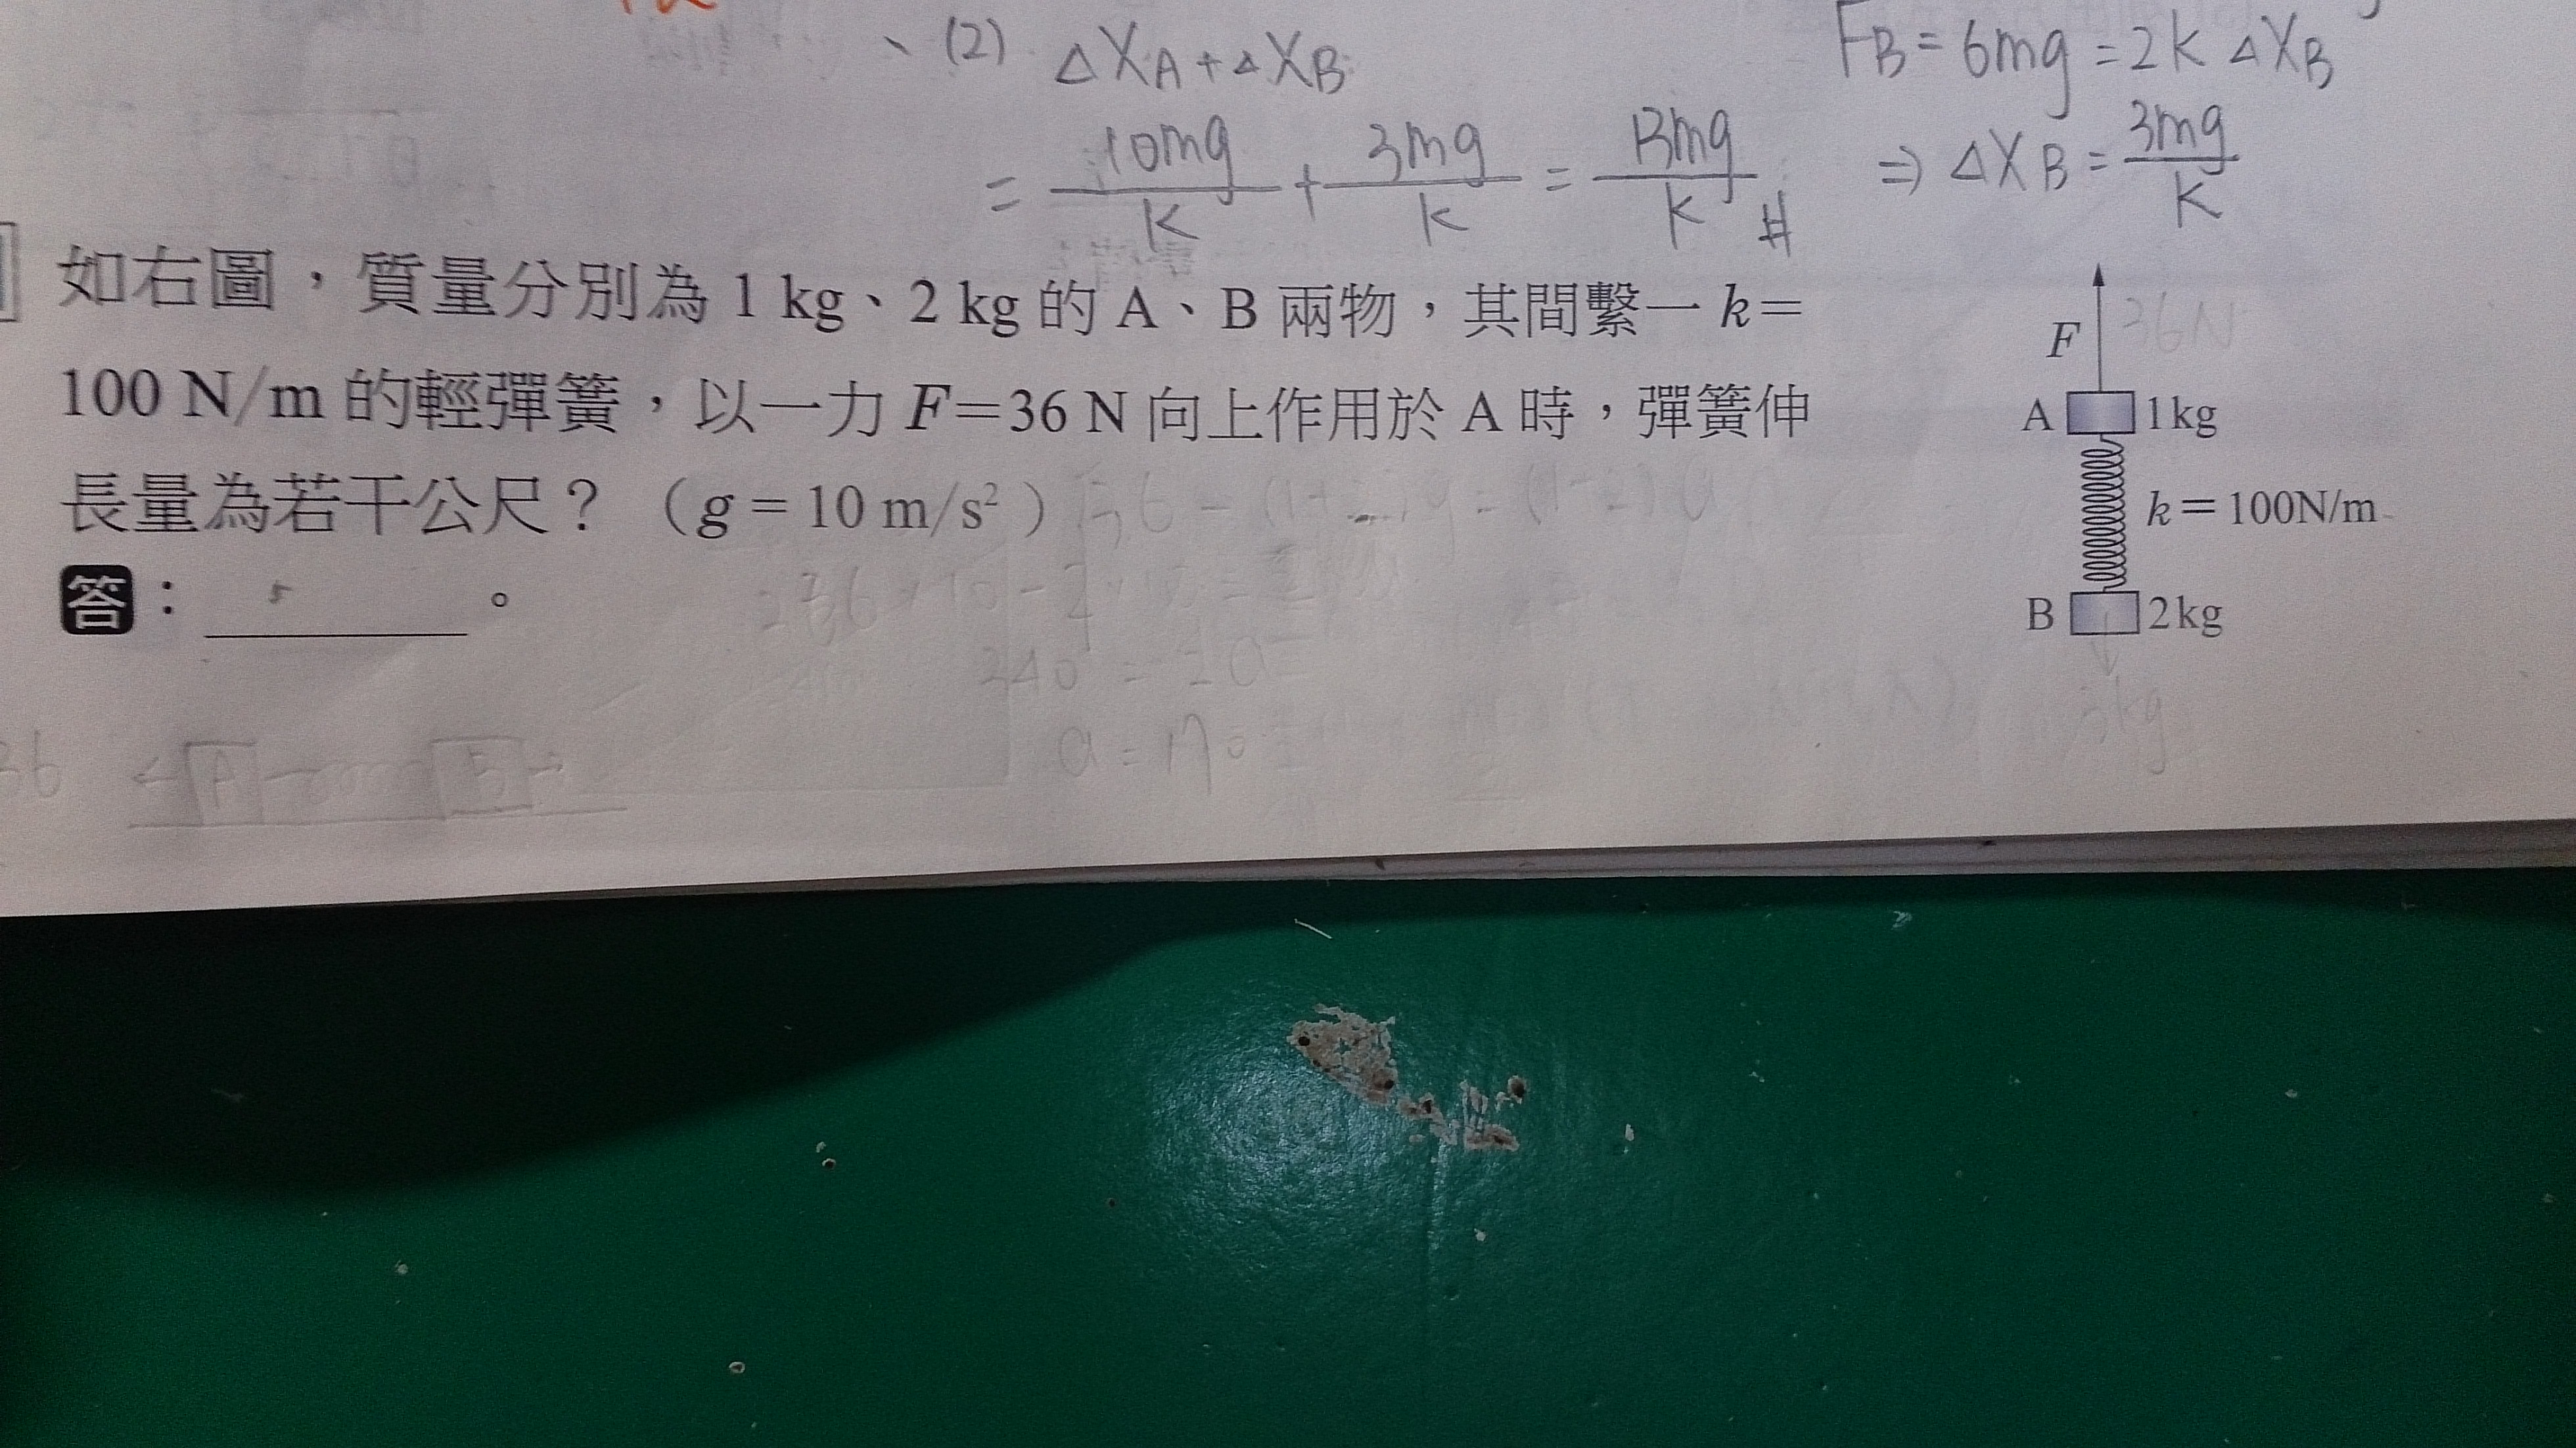 (2) ΔXA + ΔXB
= 10mg/k + 3mg/k = 13mg/k #
FB = 6mg = 2k ΔXB
⇒ ΔXB = 3mg/k
如右圖，質量分別為 1 kg、2 kg 的 A、B 兩物，其間繫一 k＝
100 N/m 的輕彈簧，以一力 F＝36 N 向上作用於 A 時，彈簧伸
長量為若干公尺？（g = 10 m/s²）
答：。
F 36N
A 1kg
k＝100N/m
B 2kg
340 =
a = 170
36 A